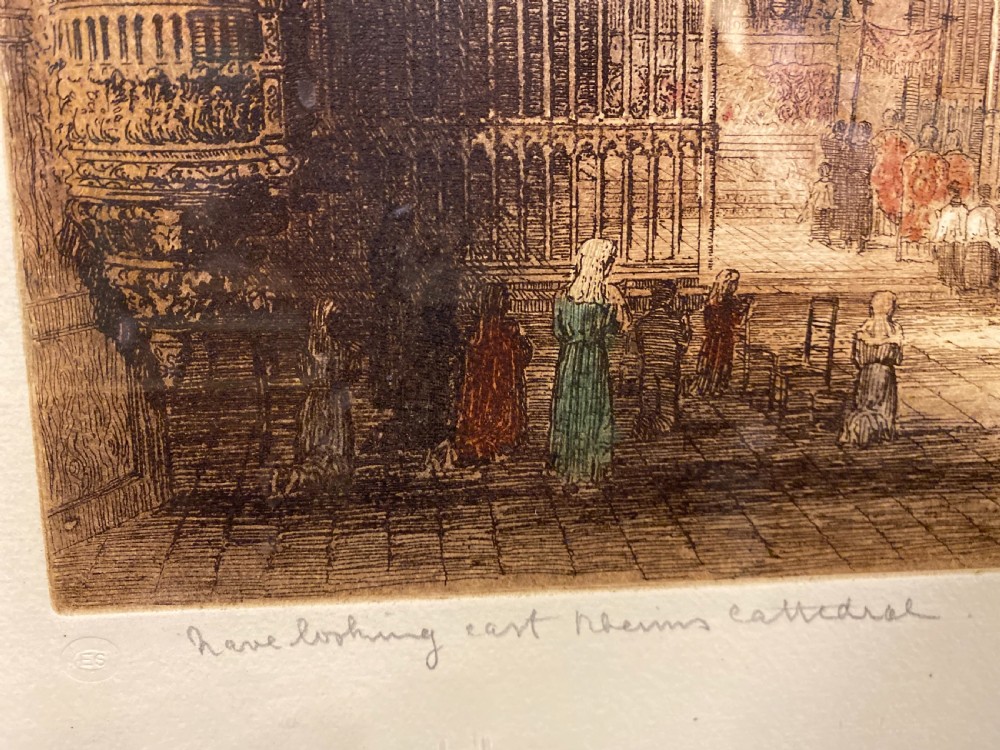 Nave looking east Rheims Cathedral.
ES